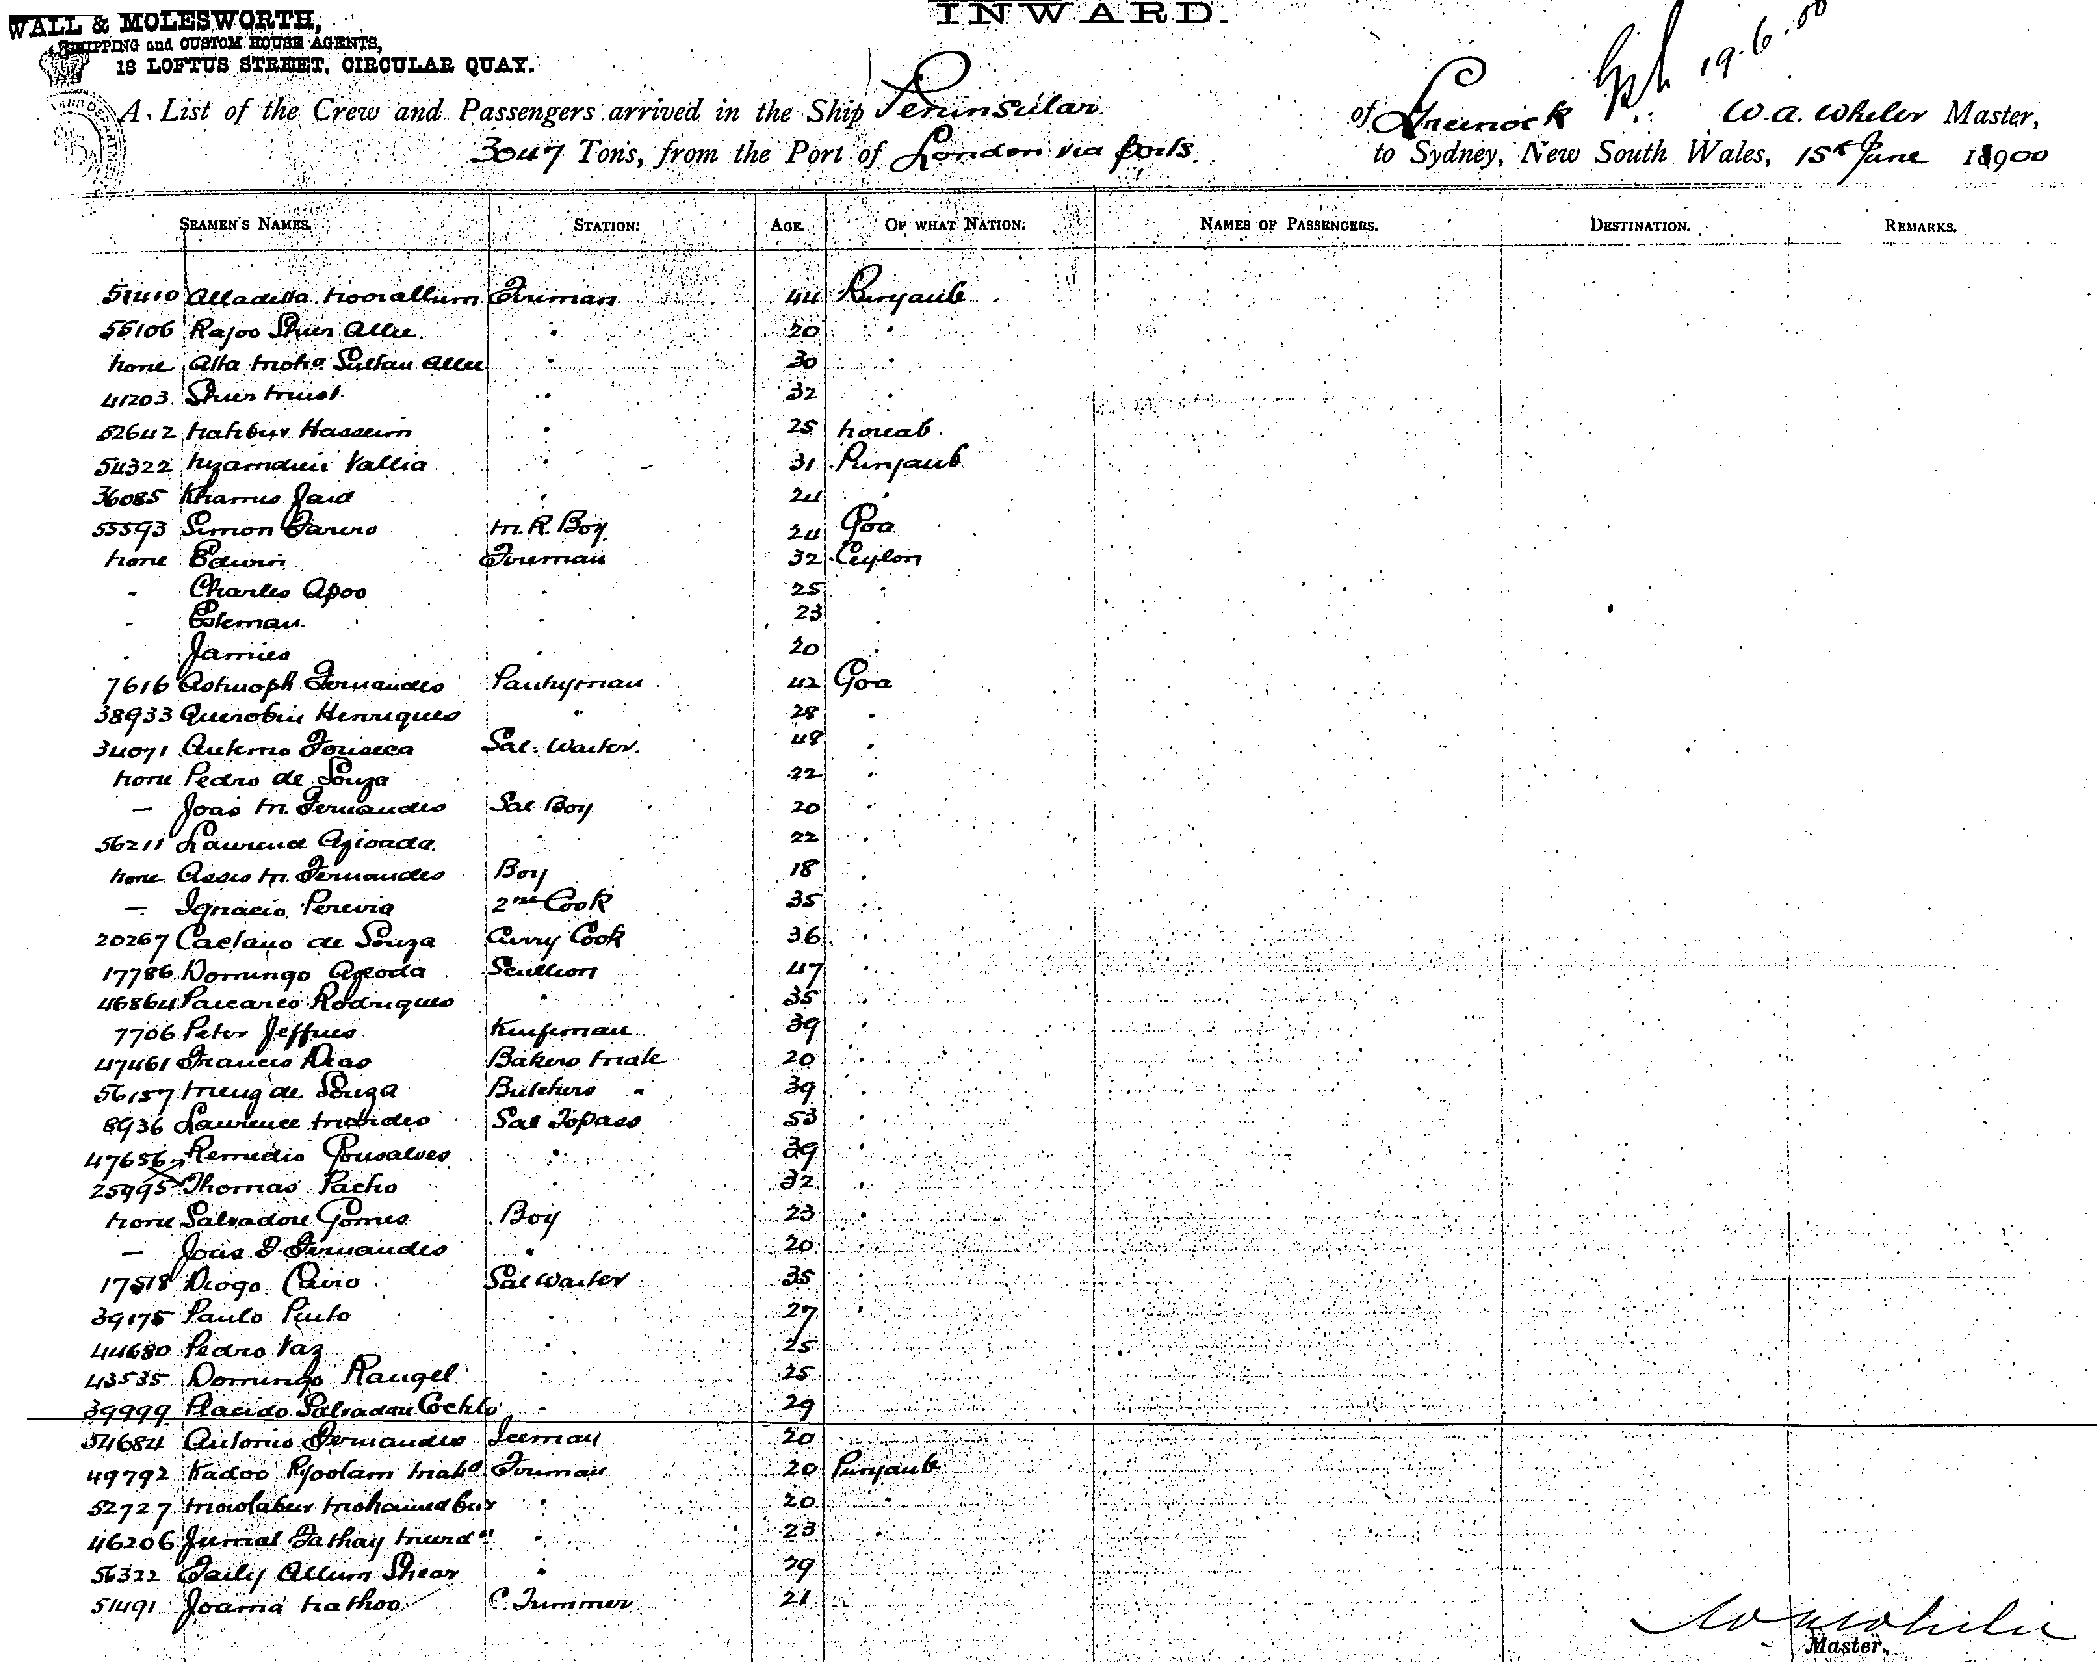 INWARD.
WALL & MOLESWORTH,
SHIPPING and CUSTOM HOUSE AGENTS,
18 LOFTUS STREET, CIRCULAR QUAY.
19.6.00
A List of the Crew and Passengers arrived in the Ship Peninsular of Greenock W.A. Wheler Master,
3047 Tons, from the Port of London via ports to Sydney, New South Wales, 15th June 1900
SEAMEN'S NAMES. STATION. AGE. OF WHAT NATION. NAMES OF PASSENGERS. DESTINATION. REMARKS.
51410 Alladitta Fireman 44 Punjaub
55106 Rajoo Sher Allee " 20 "
None Atta Moho Sultan Allee " 30
41203 Sher " 32 "
52642 Hassein " 25
54322 Nyamdin Vallia " 31 Punjaub
36085 Khamis Jaid " 24 "
55593 Simon M.R. Boy 24 Goa
None Edwin Fireman 32 Ceylon
" Charles Apoo " 25 "
" Coleman " 23 "
" James " 20 "
7616 Fernandes Pantryman 42 Goa
38933 Querobin Henriques " 28 "
34071 Antonio Fonseca Sal. Waiter 48 "
None Pedro de Souza 22 "
— Joas M. Fernandes Sal Boy 20 "
56211 " 22 "
None Assis M. Fernandes Boy 18 "
— Ignacio Pereira 2nd Cook 35 "
20267 Caetano de Souza Curry Cook 36 "
17786 Domingo Scullion 47 "
46864 Rodrigues " 35 "
7706 Peter Jeffries Knifeman 39 "
47461 Francis Dias Bakers Mate 20 "
56157 de Souza Butchers " 39 "
8936 Laurence Sal Topass 53 "
47656 Remedio Gonsalves " 39 "
25995 Thomas Pacho " 32 "
None Salvadore Gomes Boy 23 "
— Joas D Fernandes " 20 "
17518 Diogo Cairo Sal Waiter 35 "
39175 Paulo Pinto " 27 "
44680 Pedro Vaz " 25
43535 Domingo Rangel " 25
39999 Placido Salvadore Coehlo " 29
54684 Antonio Fernandes Iceman 20
49792 Kadoo Goolam Maho Fireman 20 Punjaub
52727 " 20 "
46206 Jumal Fathay " 23 "
56322 Allum Shear " 29
51491 Joama Nathoo C. Trimmer 21
W A Wheler
Master.